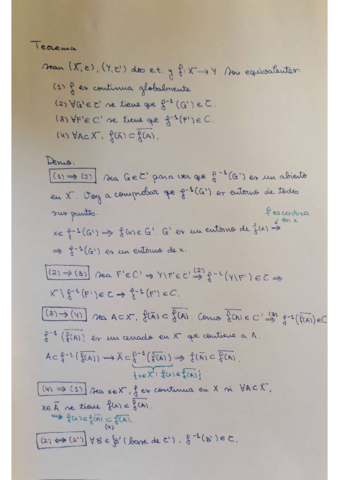 Teorema
Sean (X,τ), (Y,τ') dos e.t. y f: X → Y Son equivalentes:
(1) f es continua globalmente
(2) ∀G'∈τ' se tiene que f⁻¹(G') ∈ τ.
(3) ∀F'∈C' se tiene que f⁻¹(F') ∈ C.
(4) ∀A⊂X, f(Ā) ⊂ \overline{f(A)}.
Demo.
(1) → (2) Sea G∈τ' para ver que f⁻¹(G') es un abierto
en X. Voy a comprobar que f⁻¹(G') es entorno de todos
sus puntos.
f es continua
en x
x∈f⁻¹(G') → f(x)∈G'. G' es un entorno de f(x) →
⇒ f⁻¹(G') es un entorno de x.
(2) → (3) Sea F'∈C' → Y\F'∈τ' ⇒(2) f⁻¹(Y\F') ∈ τ ⇒
X\f⁻¹(F') ∈ τ → f⁻¹(F') ∈ C.
(3) → (4) Sea A⊂X, f(Ā) ⊂ \overline{f(A)}. Como \overline{f(A)} ∈ C' ⇒(3) f⁻¹(\overline{f(A)}) ∈ C
f⁻¹(\overline{f(A)}) es un cerrado en X que contiene a A.
A⊂f⁻¹(\overline{f(A)}) → Ā⊂f⁻¹(\overline{f(A)}) → f(Ā) ⊂ \overline{f(A)}.
{x∈X: f(x)∈\overline{f(A)}}
(4) → (1) Sea x∈X, f es continua en X si ∀A⊂X,
x∈Ā se tiene f(x)∈\overline{f(A)}.
→ f(x)∈f(Ā) ⊂ \overline{f(A)}
(4)
(2) ⟺ (2') ∀B'∈β' (base de τ'), f⁻¹(B') ∈ τ.